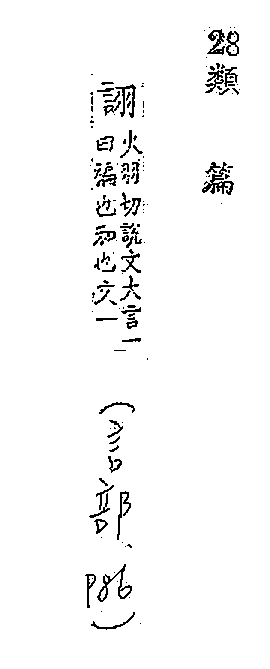 28類篇
詡
火羽切說文大言一
曰褊也和也文一
(言部、P86)